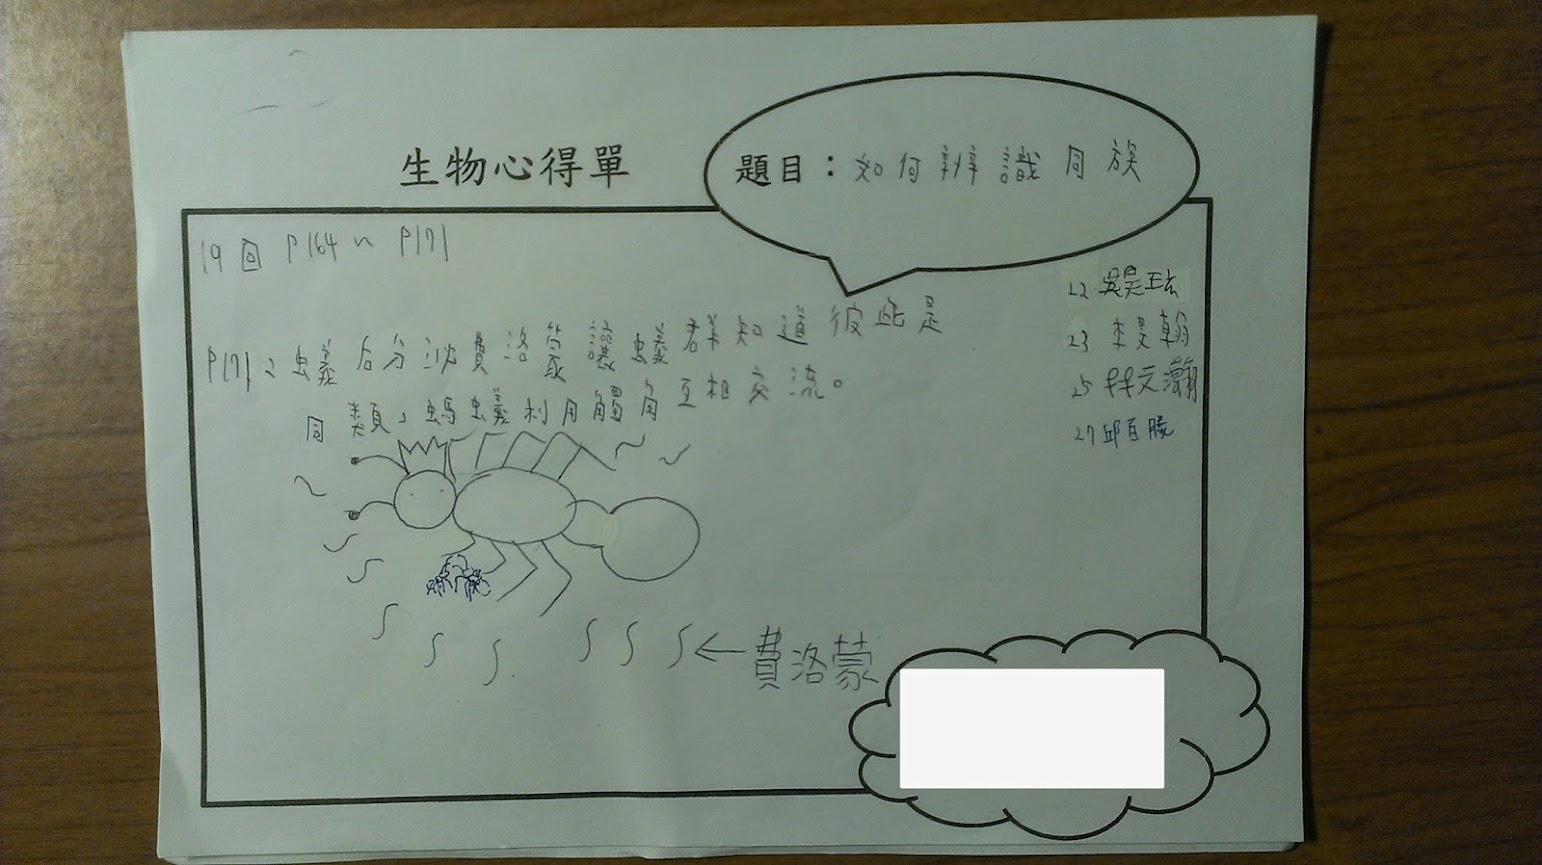 生物心得單
題目：如何辨識同族
19回 P164~P171
P171、蟻后分泌費洛蒙讓蟻群知道彼此是
同類，螞蟻利用觸角互相交流。
22 吳昊玹
23 李旻翰
25 林文瀚
27 邱百勝
費洛蒙